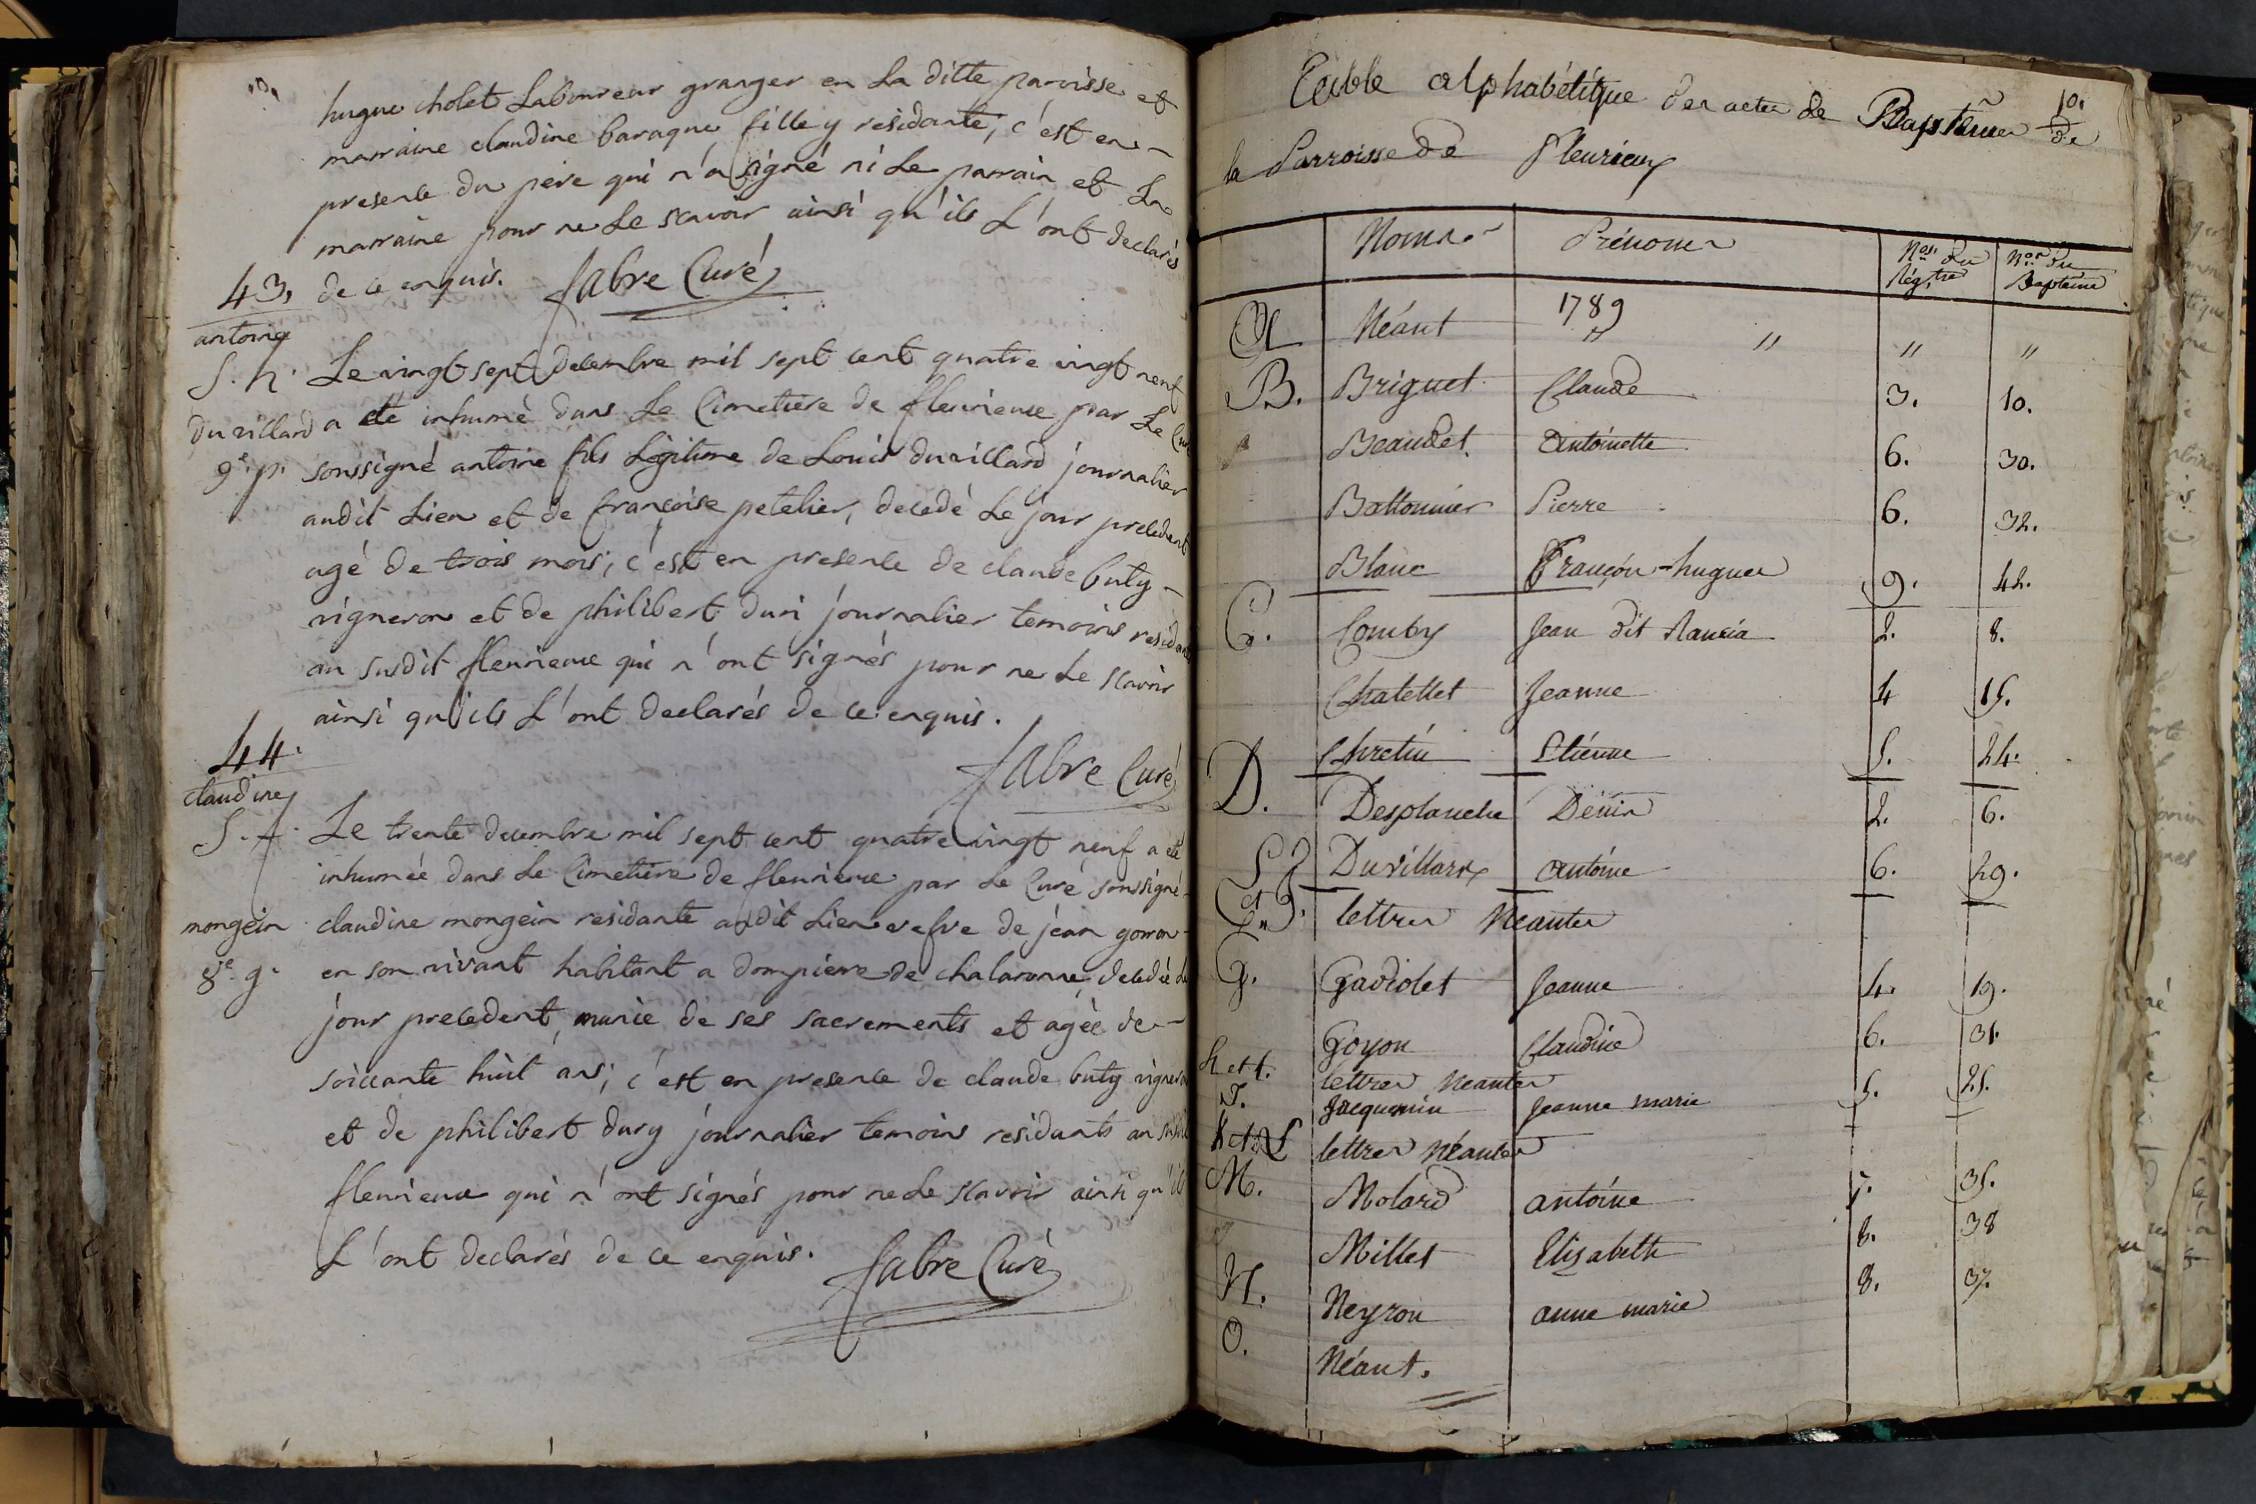 hugue cholet Laboureur granger en La ditte paroisse et
marraine claudine baraque fille y residante, c'est en
presence du pere qui n'a signé ni Le parrain et La
marraine pour ne Le scavoir ainsi qu'ils L'ont declarés
de ce enquis. fabre Curé
43,
antoine
Le vingt sept decembre mil sept cent quatre vingt neuf
duvillard a été inhumé dans Le Cimetiere de fleurieux par Le Curé
9e. p. soussigné antoine fils Légitime de Louis duvillard journalier
audit Lieu et de françoise petelier, decedé Le jour precedent
agé de trois mois; c'est en presence de claude buty
vigneron et de philibert duri journalier temoins residants
au susdit fleurieux qui n'ont signés pour ne Le scavoir
ainsi qu'ils L'ont declarés de ce enquis.
fabre Curé
44.
claudine
Le trente decembre mil sept cent quatre vingt neuf a été
inhumée dans Le Cimetiere de fleurieux par Le Curé soussigné
mongein claudine mongein residante audit Lieu vefve de jean gonon
8e. g. en son vivant habitant a dompierre de chalaronne, decedée Le
jour precedent, munie de ses sacrements et agée de
soixante huit ans; c'est en presence de claude buty vigneron
et de philibert dury journalier temoins residants au susdit
fleurieux qui n'ont signés pour ne Le scavoir ainsi qu'ils
L'ont declarés de ce enquis. fabre Curé
10.
Table alphabétique des actes de Baptêmes de
la Parroisse de fleurieux
Noms Prénoms Nos. du Régtre Nos. du Baptême
1789
A Néant " " " "
B. Briguet Claude 3. 10.
Beaudet. Antoinette 6. 30.
Battonnier Pierre 6. 32.
Blanc François-hugues 9. 42.
C. Comby Jean dit 2. 8.
Chatellet Jeanne 4 15.
Chretin Etiénne 5. 24.
D. Desplanche Dénis 2. 6.
Duvillard antoine 6. 29.
lettres Néantes
G. Gadiolet Jeanne 4. 19.
Goyon Claudine 6. 31.
h et I. lettres Néantes
J. Jacquemin Jeanne marie 5. 25.
K et L lettres Néantes
M. Molard antoine 7. 35.
Millet Elisabeth 8. 38
N. Neyron anne marie 8. 37.
O. Néant.